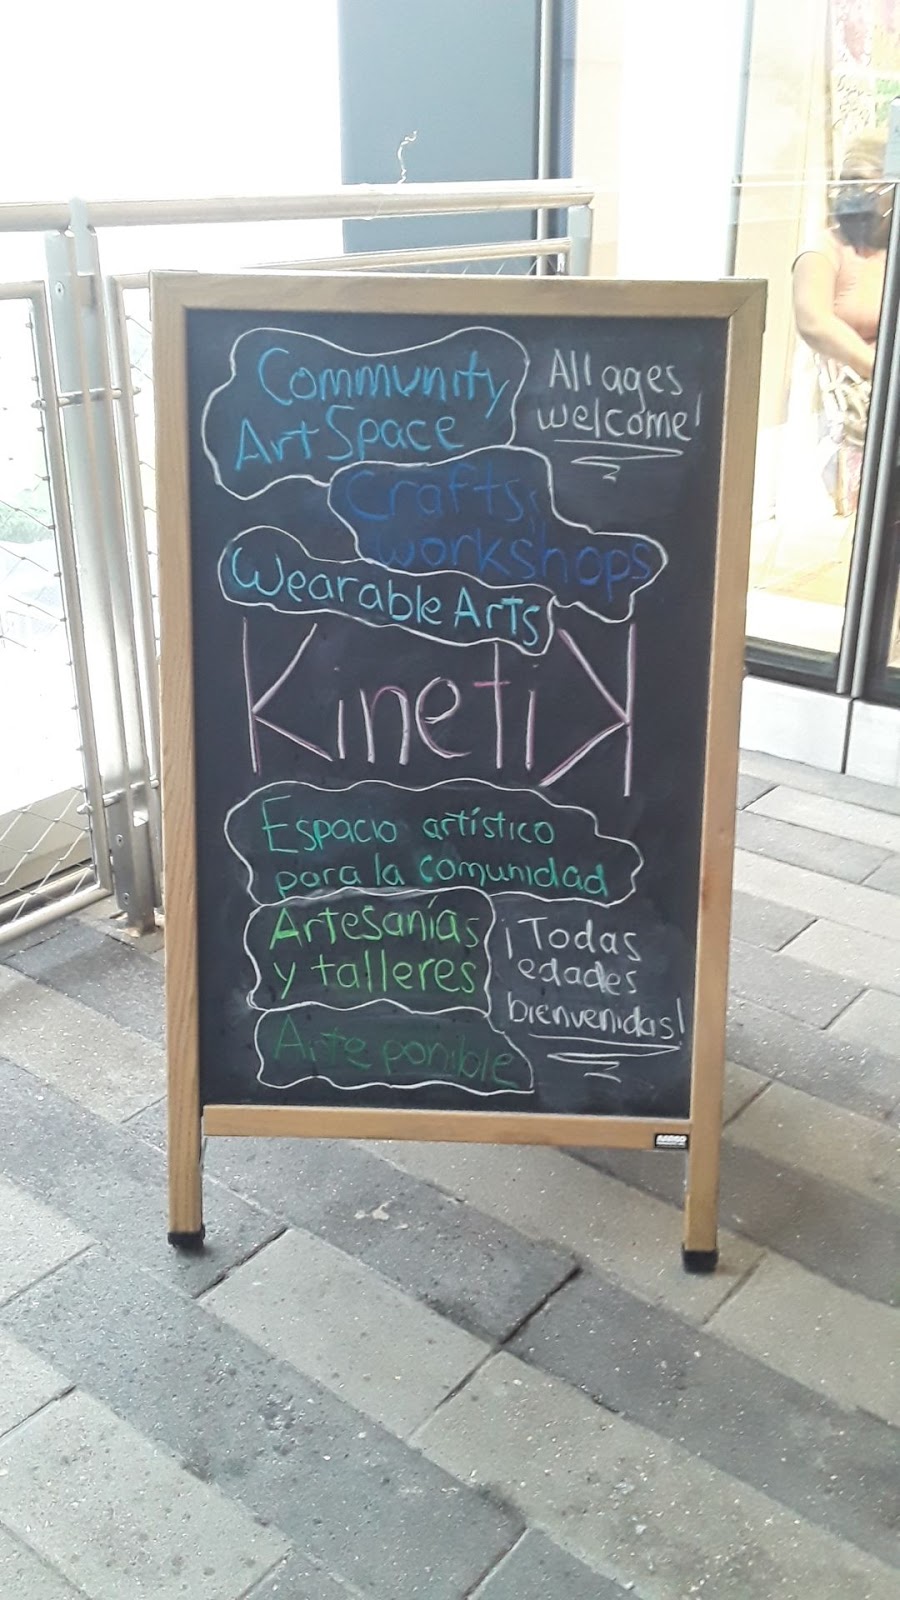 Community
Art Space
All ages
welcome!
Crafts,
workshops
Wearable Arts
KinetiK
Espacio artístico
para la comunidad
Artesanías
y talleres
¡Todas
edades
bienvenidas!
Arte ponible